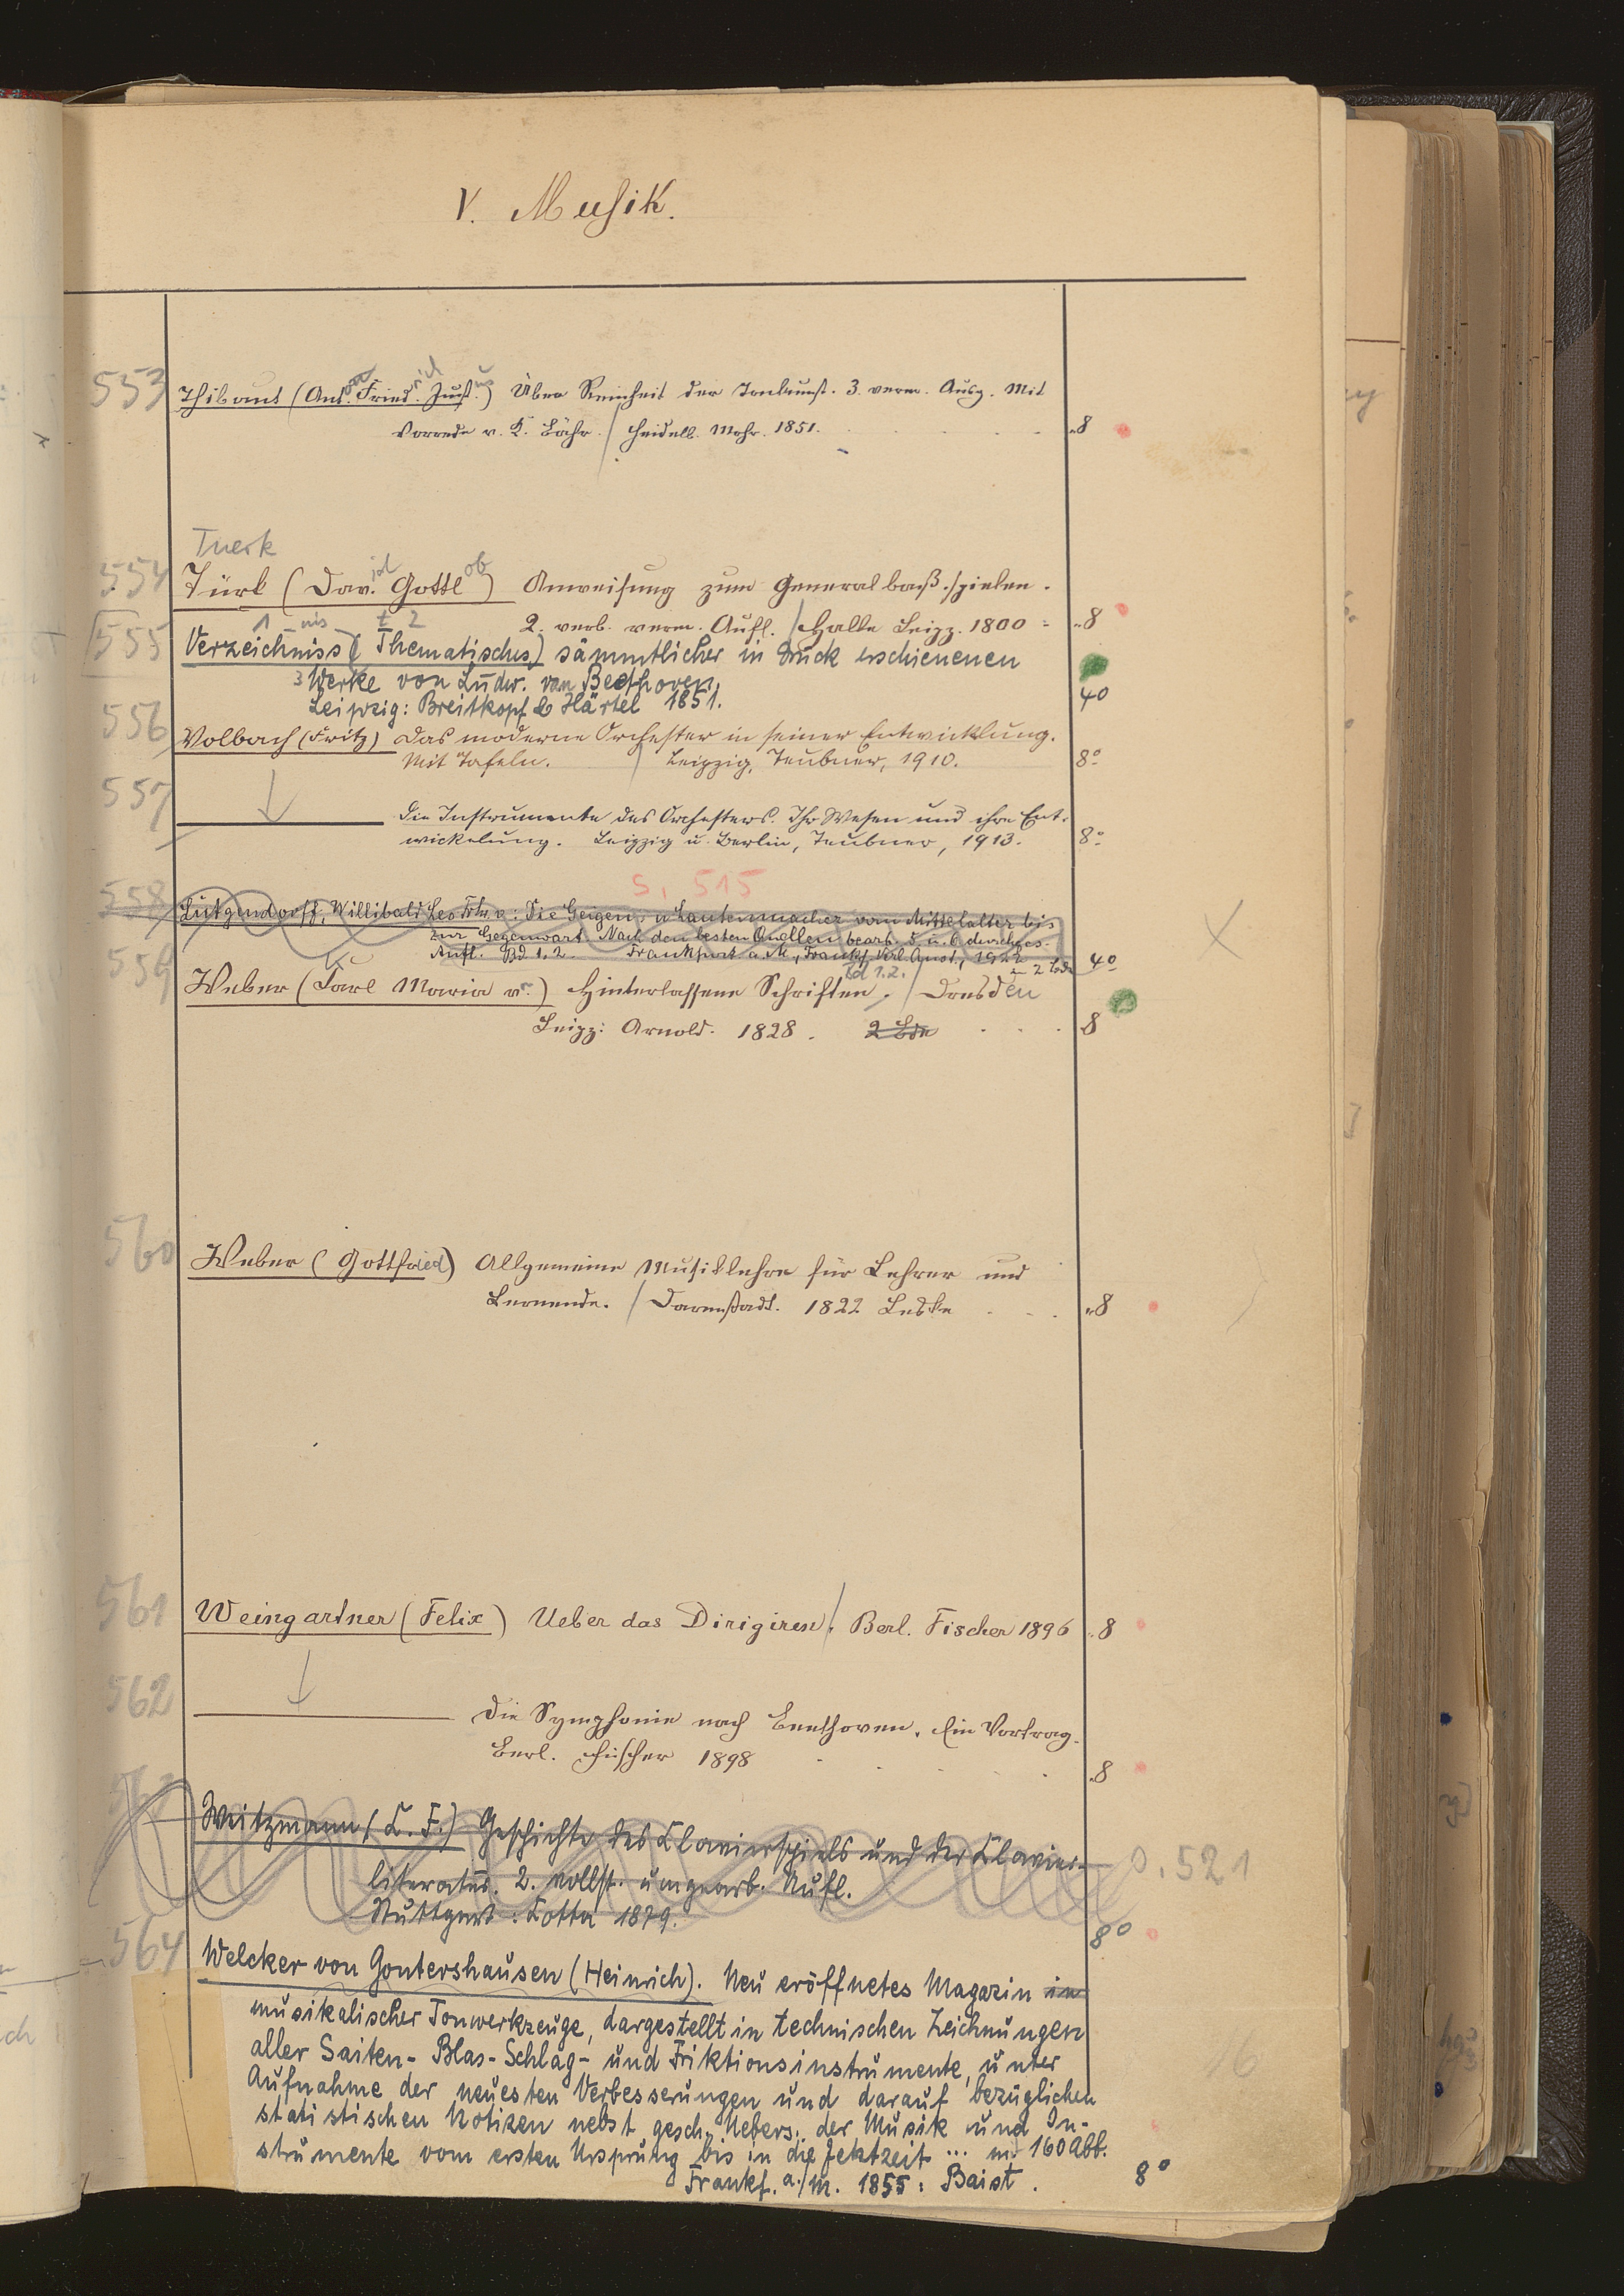 V. Musik.
553 Thibaut (Ant.on Fried.rich Just.us) Über Reinheit der Tonkunst. 3. verm. Ausg. Mit
Vorrede v. K. Bähr. / Heidelb. Mohr. 1851. 8
Tuerk
554 Türk (Dav.id Gottlob) Anweisung zum Generalbaß-spielen.
2. verb. verm. Aufl. / Halle Leipz. 1800 8
1 nis t 2
555 Verzeichniss (Thematisches) sämmtlicher in Druck erschienenen
3 Werke von Ludw. van Beethoven.
Leipzig: Breitkopf & Härtel 1851. 40
556 Volbach (Fritz) Das moderne Orchester in seiner Entwicklung.
Mit Tafeln. / Leipzig, Teubner, 1910. 8º
557 Die Instrumente des Orchesters. Ihr Wesen und ihre Ent-
wickelung. Leipzig u. Berlin, Teubner, 1913. 8º
S. 515
558 Lütgendorff, Willibald Leo Frh. v.: Die Geigen- u. Lautenmacher vom Mittelalter bis
zur Gegenwart. Nach den besten Quellen bearb. 5. u. 6. durchges.
Aufl. Bd 1. 2. Frankfurt a. M., Frankf. Verl. Anst., 1922 40
Bd 1.2. 2 Bde
559 Weber (Carl Maria v.) Hinterlassene Schriften. / Dresden
Leipz: Arnold. 1828. 2 Bde 8
560 Weber (Gottfried) Allgemeine Musiklehre für Lehrer und
Lernende. / Darmstadt. 1822 Leske 8
561 Weingartner (Felix) Ueber das Dirigiren / Berl. Fischer 1896 8
562 Die Symphonie nach Beethoven. Ein Vortrag.
Berl. Fischer 1898 8
563 Weitzmann (C. F.) Geschichte des Clavierspiels und der Clavier-
0.521
literatur. 2. vollst. umgearb. Aufl.
Stuttgart: Cotta 1879. 80
564 Welcker von Gontershausen (Heinrich). Neu eröffnetes Magazin in
musikalischer Tonwerkzeuge, dargestellt in technischen Zeichnungen
aller Saiten- Blas- Schlag- und Friktionsinstrumente, unter
Aufnahme der neuesten Verbesserungen und darauf bezüglichen
statistischen Notizen nebst gesch. Uebers. der Musik und In-
strumente vom ersten Ursprung bis in die Jetztzeit ... m. 160 Abb.
Frankf. a./M. 1855: Baist. 8º
16